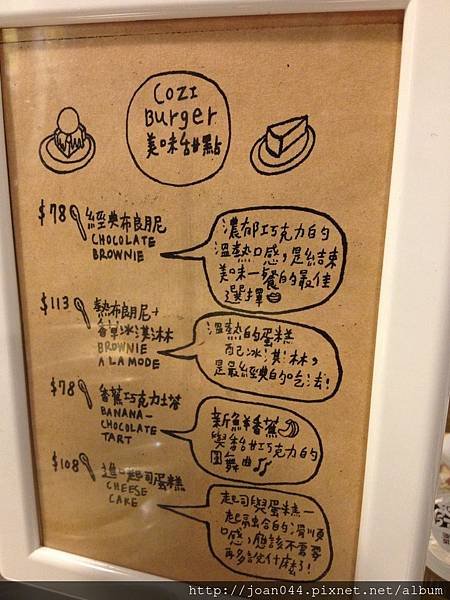 COZI
Burger
美味甜點
$78 經典布良朋尼
CHOCOLATE
BROWNIE
濃郁巧克力的
溫熱口感,是結束
美味一餐的最佳
選擇
$113 熱布良朋尼+
香草冰淇淋
BROWNIE
A LA MODE
溫熱的蛋糕
配冰淇淋,
是最經典的吃法!
$78 香蕉巧克力土塔
BANANA-
CHOCOLATE
TART
新鮮香蕉
與香甜巧克力的
圓舞曲
$108 進口起司蛋糕
CHEESE
CAKE
起司與蛋糕一
起融合的滑順
口感,應該不需要
再多說什麼了!
http://joan044.pixnet.net/album